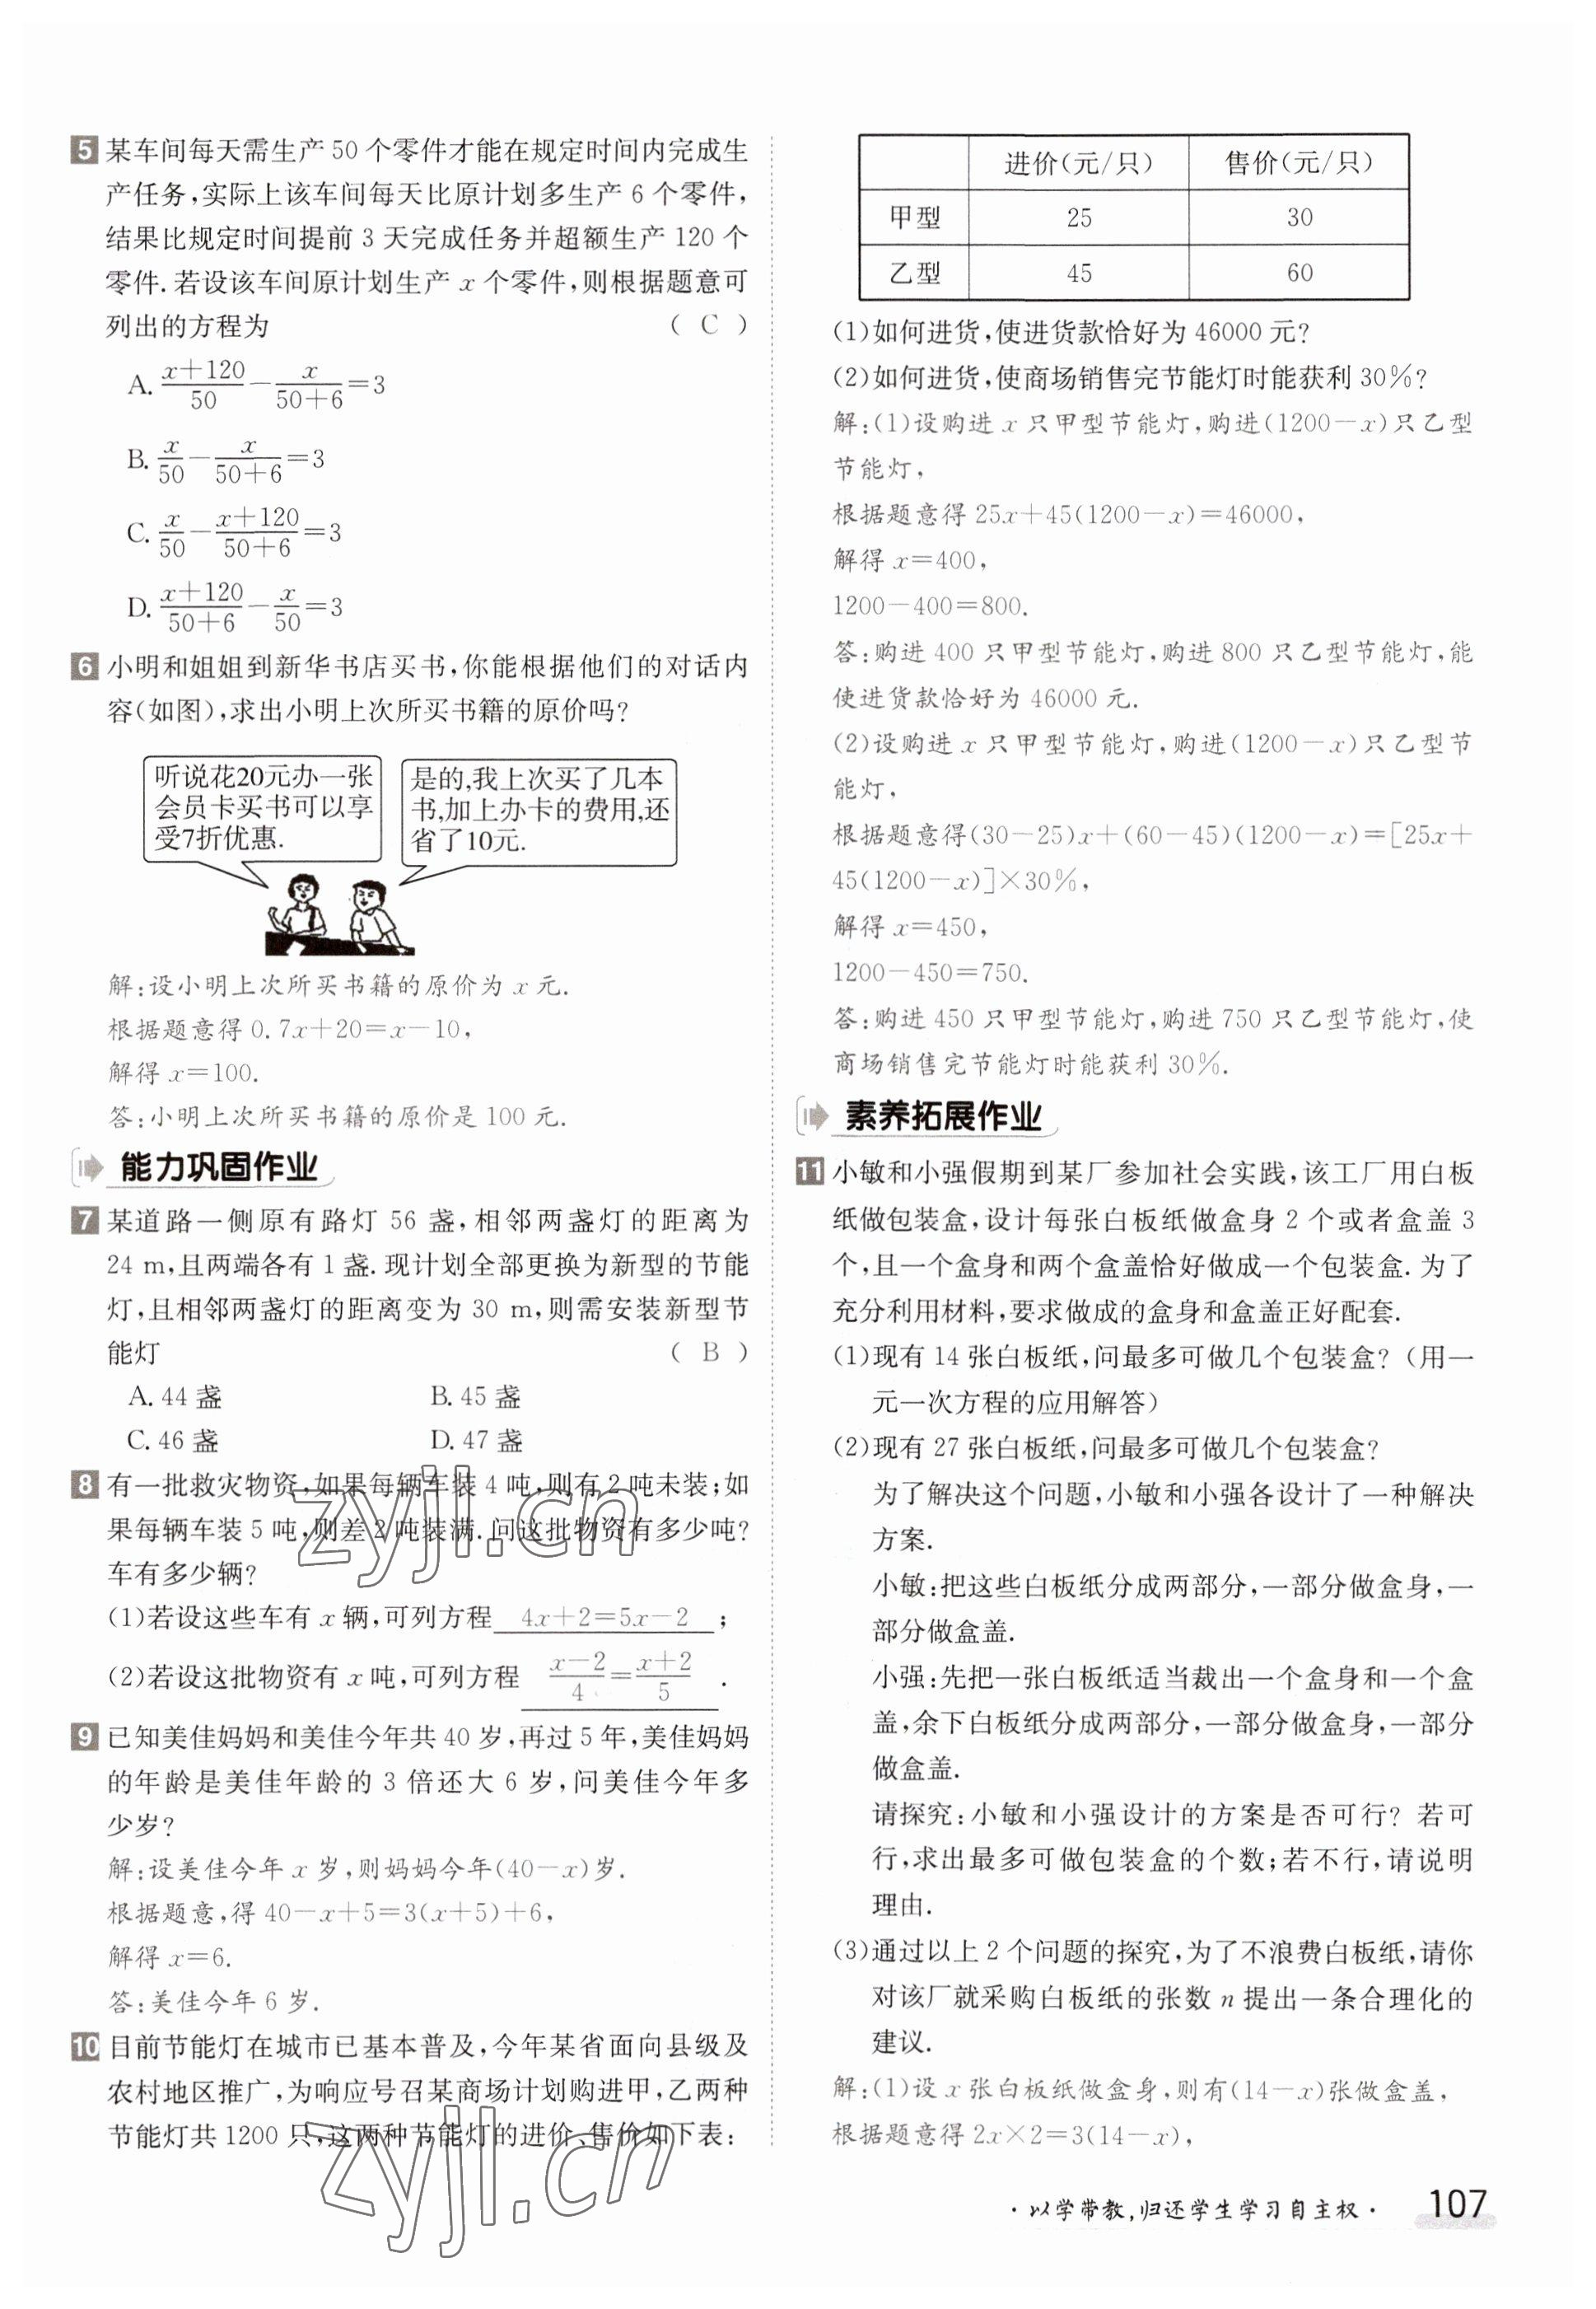 5 某车间每天需生产50个零件才能在规定时间内完成生
产任务,实际上该车间每天比原计划多生产6个零件,
结果比规定时间提前3天完成任务并超额生产120个
零件.若设该车间原计划生产x个零件,则根据题意可
列出的方程为 ( C )
A. (x+120)/50 - x/(50+6) =3
B. x/50 - x/(50+6) =3
C. x/50 - (x+120)/(50+6) =3
D. (x+120)/(50+6) - x/50 =3
6 小明和姐姐到新华书店买书,你能根据他们的对话内
容(如图),求出小明上次所买书籍的原价吗?
听说花20元办一张
会员卡买书可以享
受7折优惠.
是的,我上次买了几本
书,加上办卡的费用,还
省了10元.
解:设小明上次所买书籍的原价为x元.
根据题意得0.7x+20=x-10,
解得x=100.
答:小明上次所买书籍的原价是100元.
能力巩固作业
7 某道路一侧原有路灯56盏,相邻两盏灯的距离为
24 m,且两端各有1盏.现计划全部更换为新型的节能
灯,且相邻两盏灯的距离变为30 m,则需安装新型节
能灯 ( B )
A. 44盏 B. 45盏
C. 46盏 D. 47盏
8 有一批救灾物资,如果每辆车装4吨,则有2吨未装;如
果每辆车装5吨,则差2吨装满.问这批物资有多少吨?
车有多少辆?
(1)若设这些车有x辆,可列方程 4x+2=5x-2 ;
(2)若设这批物资有x吨,可列方程 (x-2)/4=(x+2)/5 .
9 已知美佳妈妈和美佳今年共40岁,再过5年,美佳妈妈
的年龄是美佳年龄的3倍还大6岁,问美佳今年多
少岁?
解:设美佳今年x岁,则妈妈今年(40-x)岁.
根据题意,得40-x+5=3(x+5)+6,
解得x=6.
答:美佳今年6岁.
10 目前节能灯在城市已基本普及,今年某省面向县级及
农村地区推广,为响应号召某商场计划购进甲,乙两种
节能灯共1200只,这两种节能灯的进价、售价如下表:
进价(元/只) 售价(元/只)
甲型 25 30
乙型 45 60
(1)如何进货,使进货款恰好为46000元?
(2)如何进货,使商场销售完节能灯时能获利30%?
解:(1)设购进x只甲型节能灯,购进(1200-x)只乙型
节能灯,
根据题意得25x+45(1200-x)=46000,
解得x=400,
1200-400=800.
答:购进400只甲型节能灯,购进800只乙型节能灯,能
使进货款恰好为46000元.
(2)设购进x只甲型节能灯,购进(1200-x)只乙型节
能灯,
根据题意得(30-25)x+(60-45)(1200-x)=[25x+
45(1200-x)]×30%,
解得x=450,
1200-450=750.
答:购进450只甲型节能灯,购进750只乙型节能灯,使
商场销售完节能灯时能获利30%.
素养拓展作业
11 小敏和小强假期到某厂参加社会实践,该工厂用白板
纸做包装盒,设计每张白板纸做盒身2个或者盒盖3
个,且一个盒身和两个盒盖恰好做成一个包装盒.为了
充分利用材料,要求做成的盒身和盒盖正好配套.
(1)现有14张白板纸,问最多可做几个包装盒?(用一
元一次方程的应用解答)
(2)现有27张白板纸,问最多可做几个包装盒?
为了解决这个问题,小敏和小强各设计了一种解决
方案.
小敏:把这些白板纸分成两部分,一部分做盒身,一
部分做盒盖.
小强:先把一张白板纸适当裁出一个盒身和一个盒
盖,余下白板纸分成两部分,一部分做盒身,一部分
做盒盖.
请探究:小敏和小强设计的方案是否可行?若可
行,求出最多可做包装盒的个数;若不行,请说明
理由.
(3)通过以上2个问题的探究,为了不浪费白板纸,请你
对该厂就采购白板纸的张数n提出一条合理化的
建议.
解:(1)设x张白板纸做盒身,则有(14-x)张做盒盖,
根据题意得2x×2=3(14-x),
·以学带教,归还学生学习自主权· 107
zyjl.cn
zyjl.cn